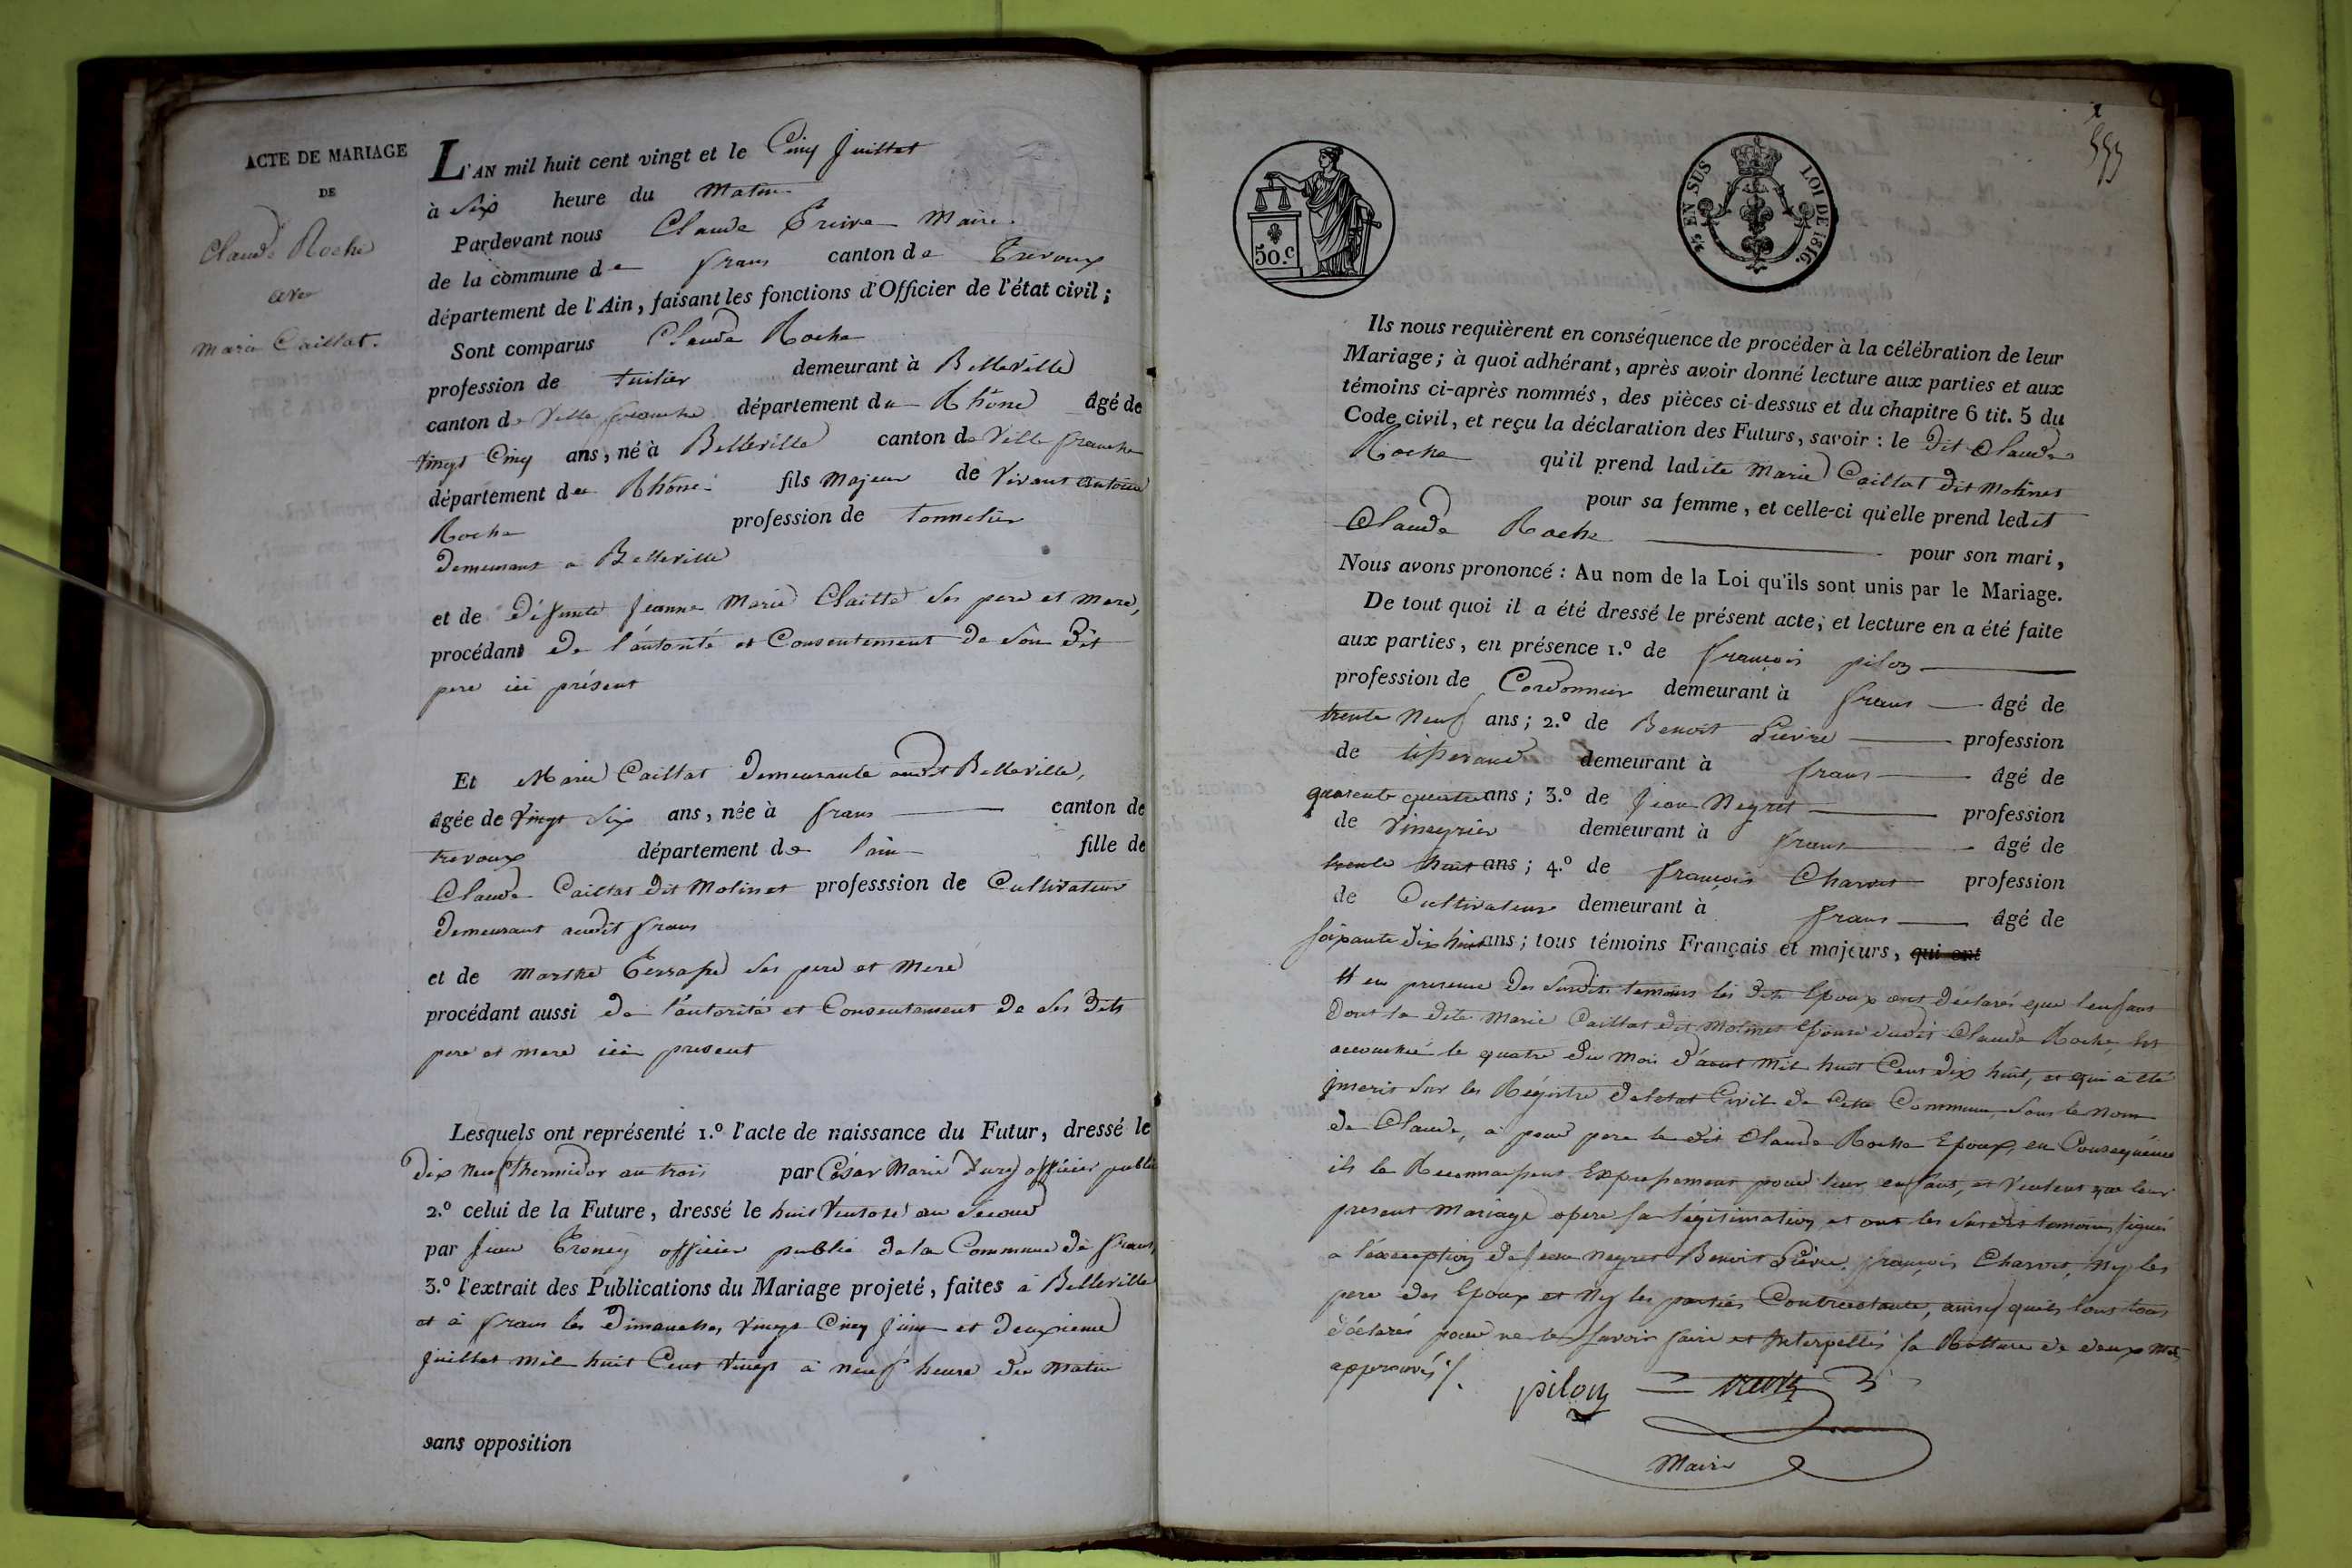 ACTE DE MARIAGE
DE
Claude Roche
avec
Marie Caillat.
L'AN mil huit cent vingt et le Cinq Juillet
à Six heure du Matin
Pardevant nous Claude Maire
de la commune de frans canton de Trevoux
département de l'Ain, faisant les fonctions d'Officier de l'état civil;
Sont comparus Claude Roche
profession de tuilier demeurant à Belleville
canton de Ville franche département du Rhône âgé de
Vingt Cinq ans, né à Belleville canton de Ville franche
département du Rhône fils Majeur de Vivant antoine
Roche profession de tonnelier
Demeurant a Belleville
et de Défunte Jeanne Marie Claitte Ses pere et Mere,
procédant De l'autorité et Consentement De Son Dit
pere ici présent
Et Marie Caillat Demeurante audit Belleville,
âgée de Vingt Six ans, née à frans canton de
trevoux département de l'ain fille de
Claude Caillat Dit Molinet professsion de Cultivateur
Demeurant audit frans
et de Marthe Ses pere et Mere
procédant aussi De l'autorité et Consentement De Ses Dits
pere et mere ici present
Lesquels ont représenté 1.º l'acte de naissance du Futur, dressé le
Dix neuf thermidor an trois par César Marie officier public
2.º celui de la Future, dressé le huit Ventose an Second
par Jean officier public De la Commune De frans,
3.º l'extrait des Publications du Mariage projeté, faites à Belleville
et à frans les Dimanches, Vingt Cinq Juin et Deuxieme
Juillet Mil huit Cent Vingt à neuf heure Du Matin
sans opposition
553
50.c
EN SUS LOI DE 1816.
Ils nous requièrent en conséquence de procéder à la célébration de leur
Mariage; à quoi adhérant, après avoir donné lecture aux parties et aux
témoins ci-après nommés, des pièces ci-dessus et du chapitre 6 tit. 5 du
Code civil, et reçu la déclaration des Futurs, savoir : le Dit Claude
Roche qu'il prend ladite Marie Caillat Dit Molinet
pour sa femme, et celle-ci qu'elle prend ledit
Claude Roche pour son mari,
Nous avons prononcé : Au nom de la Loi qu'ils sont unis par le Mariage.
De tout quoi il a été dressé le présent acte; et lecture en a été faite
aux parties, en présence 1.º de françois pilon
profession de Cordonnier demeurant à frans âgé de
trente Neuf ans; 2.º de Benoit profession
de tisserand demeurant à frans âgé de
quarente quatre ans; 3.º de Jean Neyret profession
de Vineyrier demeurant à frans âgé de
trente huit ans; 4.º de françois Charvet profession
de Cultivateur demeurant à frans âgé de
soixante Dix huit ans; tous témoins Français et majeurs, qui ont
en presence Des Susdits temoins les Dits Epoux ont Déclarés que l'enfant
Dont la Dite Marie Caillat Dit Molinet Epouse dudit Claude Roche, Est
accouchée le quatre Du Mois D'aout Mil huit Cent Dix huit, et qui a été
Inscrit Sur les Régistre De l'etat Civil De Cette Commune Sous le Nom
De Claude, a pour pere le Dit Claude Roche Epoux, en Consequence
ils le Reconnaissent Expressement pour leur enfant, et Veulent que leur
present Mariage opere Sa légitimation, et ont les Susdits temoins, Signés
a l'exception De Jean Neyret Benoit françois Charvet, Ny les
pere Des Epoux et Ny les parties Contractante, ainsy qu'ils l'ont tous
Déclarés pour ne le Savoir faire et Interpellés la Ratture De Deux Mots
approuvés /.
pilon
Maire